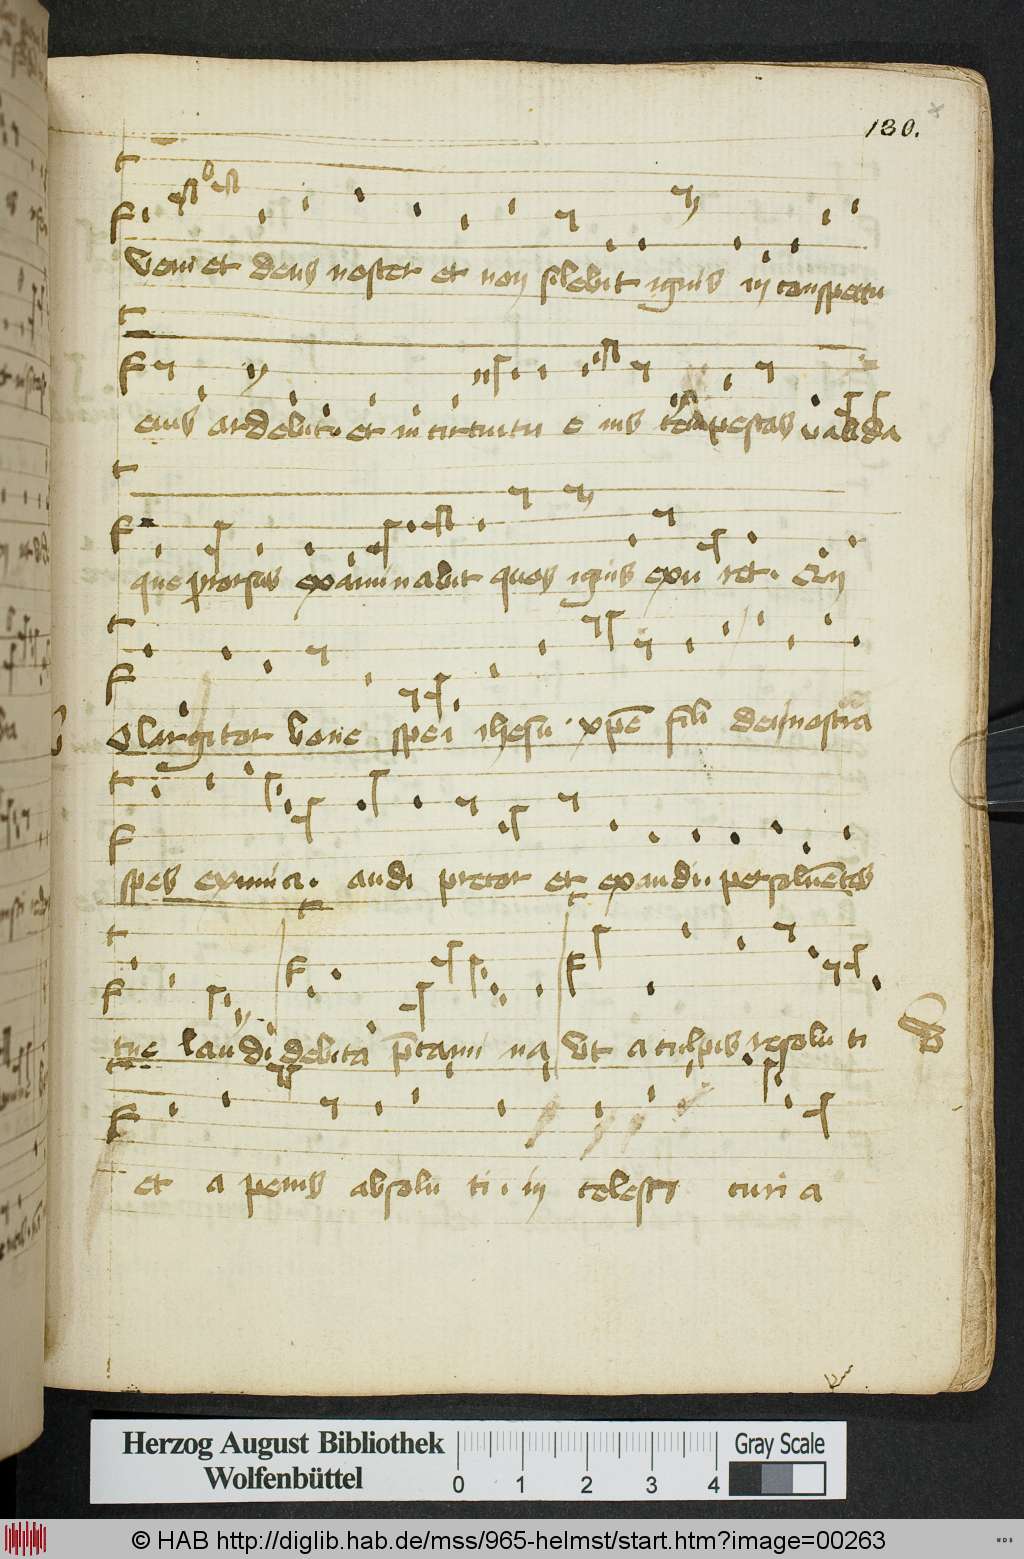 130.
Veniet deus noster et non silebit ignis in conspectu
eius ardebit et in circuitu e ius tempestas valida
que prorsus examinabit quos ignis exu ret. Qn
O largitor bone spei ihesu xpē fili dei nostra
spes eximia. audi precor et exaudi. persoluētes
tue laudi debita p̄cami na Ut a culpis resolu ti
et a penis absolu ti. in celesti curi a
Herzog August Bibliothek
Wolfenbüttel
0 1 2 3 4
Gray Scale
© HAB http://diglib.hab.de/mss/965-helmst/start.htm?image=00263